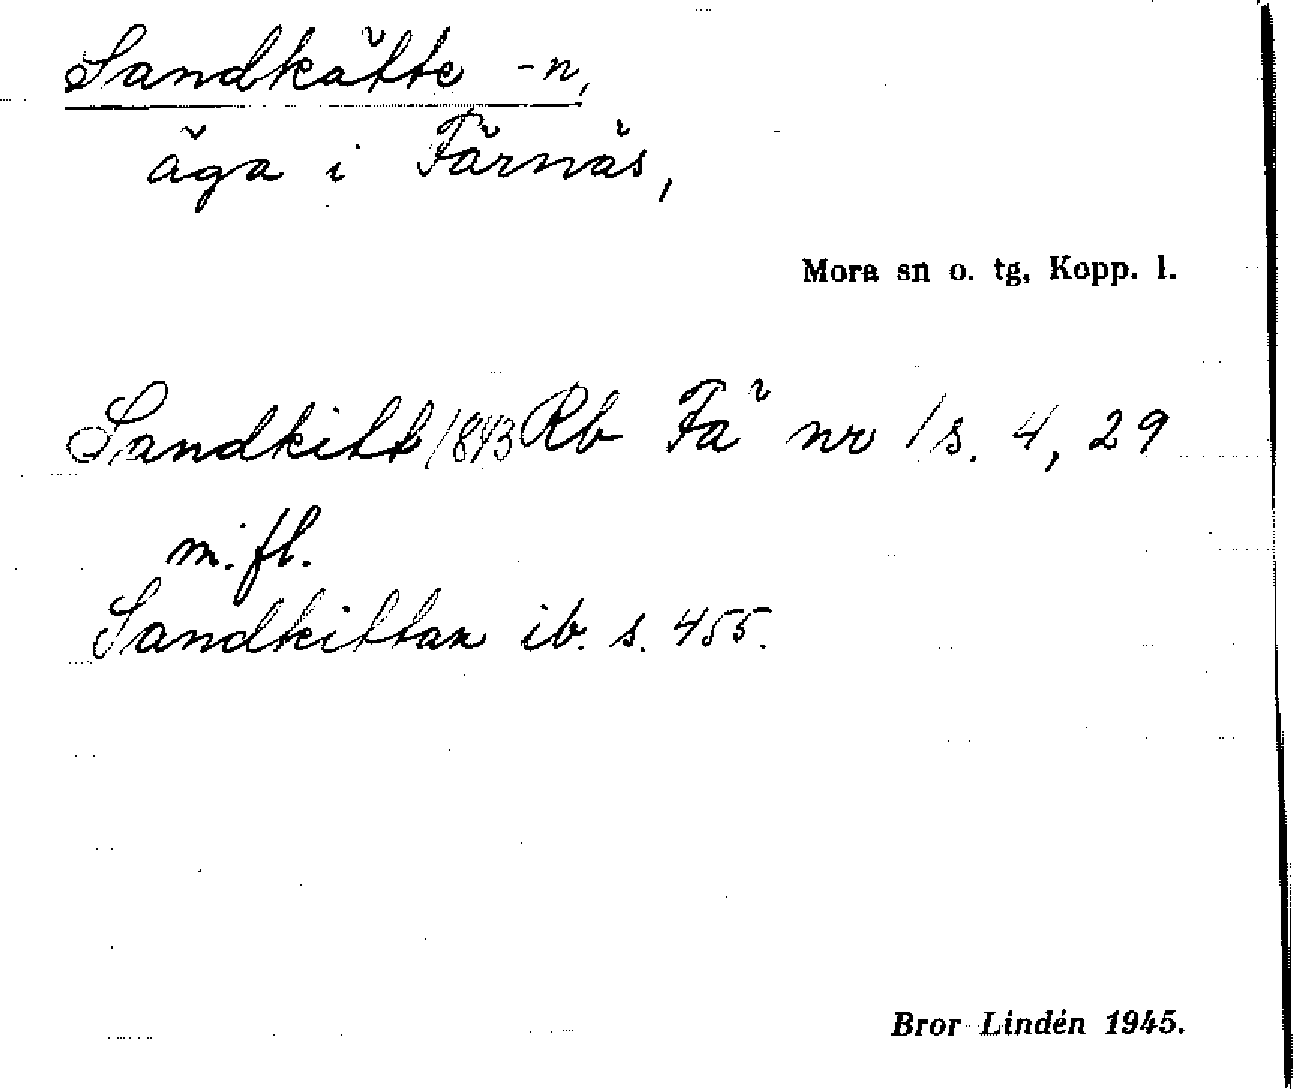 Sandkätte -n,
äga i Färnäs,
Mora sn o. tg, Kopp. l.
Sandkitt 1843 Rb Fä nr 1 s. 4, 29
m. fl.
Sandkittan ib. s. 455.
Bror Lindén 1945.